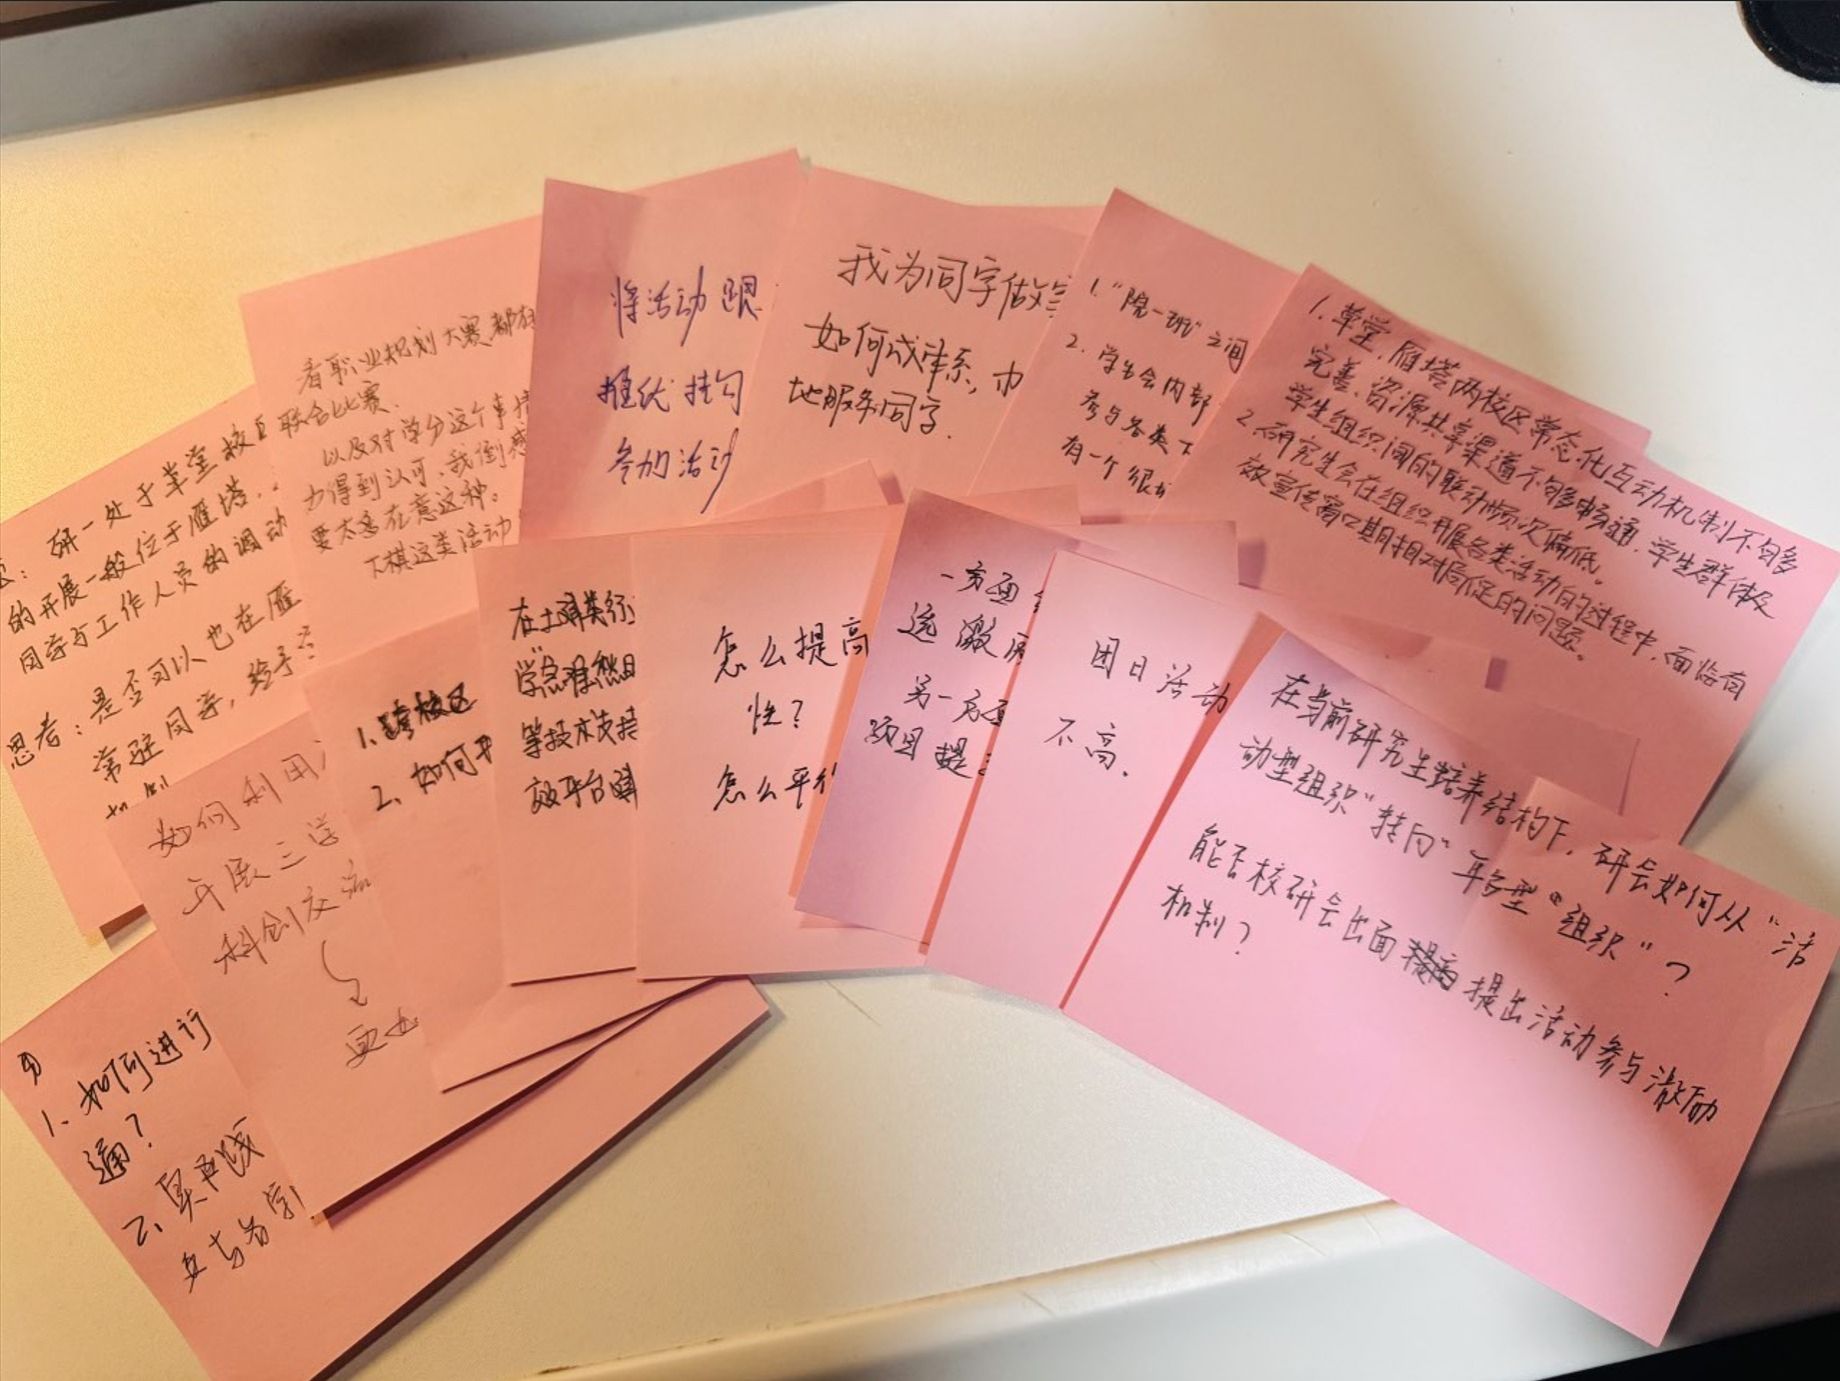 研一处于草堂校区
的开展一般位于雁塔
同学与工作人员的调动
思考：是否可以也在雁
常驻同学，给予
看职业规划大赛都在
联合比赛、
以及对学分这个事情
力得到认可、我倒感
要太多在意这种。
下棋这类活动
将活动跟
推优挂勾
参加活动
我为同学做实
如何成体系，力
地服务同学.
1."院一班"之间
2. 学生会内部
参与各类
有一个很
1. 草堂、雁塔两校区常态化互动机制不够
完善、资源共享渠道不够畅通，学生群体及
学生组织间的联动频次偏低。
2. 研究生会在组织开展各类活动的过程中，面临有
效宣传窗口期相对局促的问题。
1. 如何进行
通？
2、
如何利用
开展三
科创交流
1. 跨校区
2、如何
在土
等技术支持
效平台
怎么提高
性？
怎么平
一方面
选 激
另一方面
项目 提
团日活动
不高.
在当前研究生培养结构下，研会如何从"活
动型组织"转向"年多型"组织"？
能否校研会出面 提出活动参与激励
机制？